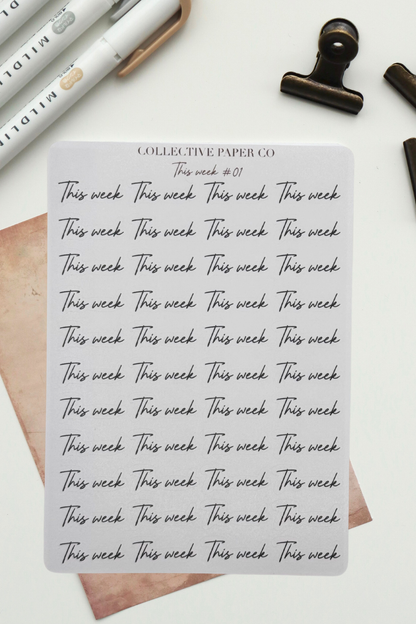 MILDLI
MILDLIN
MILDLIN
COLLECTIVE PAPER CO
This week #01
This week This week This week This week
This week This week This week This week
This week This week This week This week
This week This week This week This week
This week This week This week This week
This week This week This week This week
This week This week This week This week
This week This week This week This week
This week This week This week This week
This week This week This week This week
This week This week This week This week